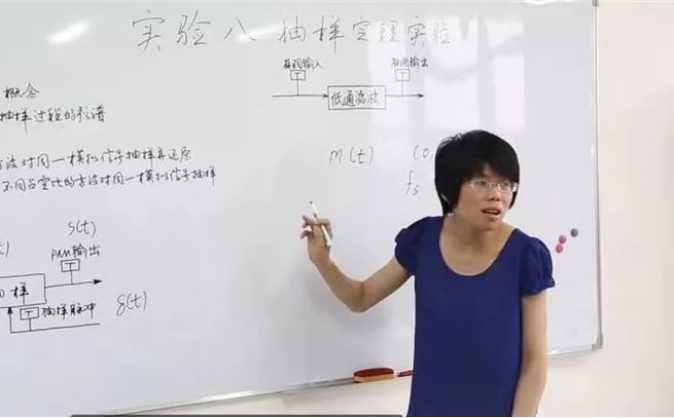 实验八 抽样定理实验
概念
抽样过程的频谱
方波对同一模拟信号抽样并还原
不同占空比的方波对同一模拟信号抽样
输入
输出
低通滤波
m(t)
(0,
fs
S(t)
PAM输出
T
样
T
抽样脉冲
δ(t)